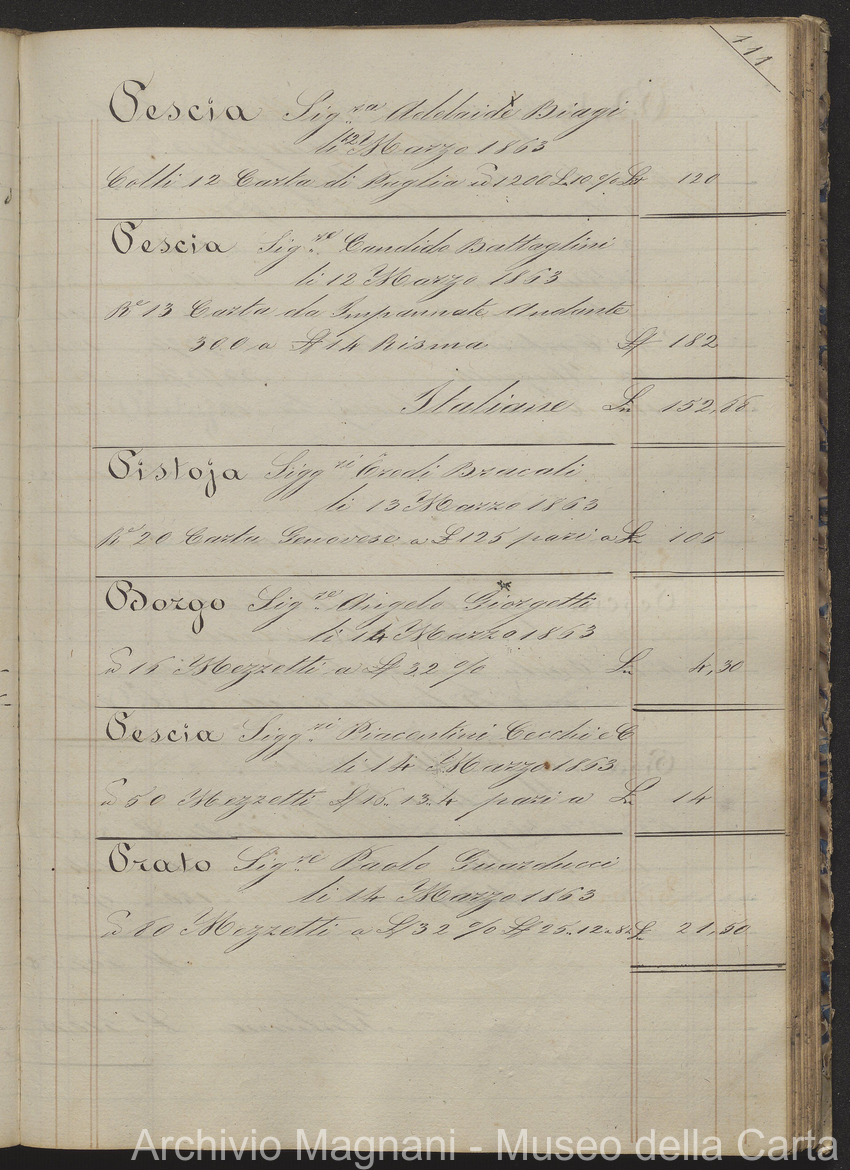 711
Pescia Sig.ra Adelaide Biagi
li 12 Marzo 1863
Colli 12 Carta di Paglia 1200 L 10 % Ln 120
Pescia Sig.re Candido Battaglini
li 12 Marzo 1863
Re 13 Carta da Impannate Andante
30.0 a £ 14 Risma £ 182
Italiane Ln 152,88
Pistoja Sigg.ri Eredi Bracali
li 13 Marzo 1863
Re 20 Carta Genovese a £ 125 pari a Ln 105
Borgo Sig.re Angelo Giorgetti
li 14 Marzo 1863
16 Mezzetti a £ 32 % Ln 4,30
Pescia Sigg.ri Piacentini Cecchi e C
li 14 Marzo 1863
50 Mezzetti £ 16.. 13.. 4 pari a Ln 14
Prato Sig.re Paolo Guarducci
li 14 Marzo 1863
80 Mezzetti a £ 32 % £ 25.. 12.. 8 Ln 21,50
Archivio Magnani - Museo della Carta